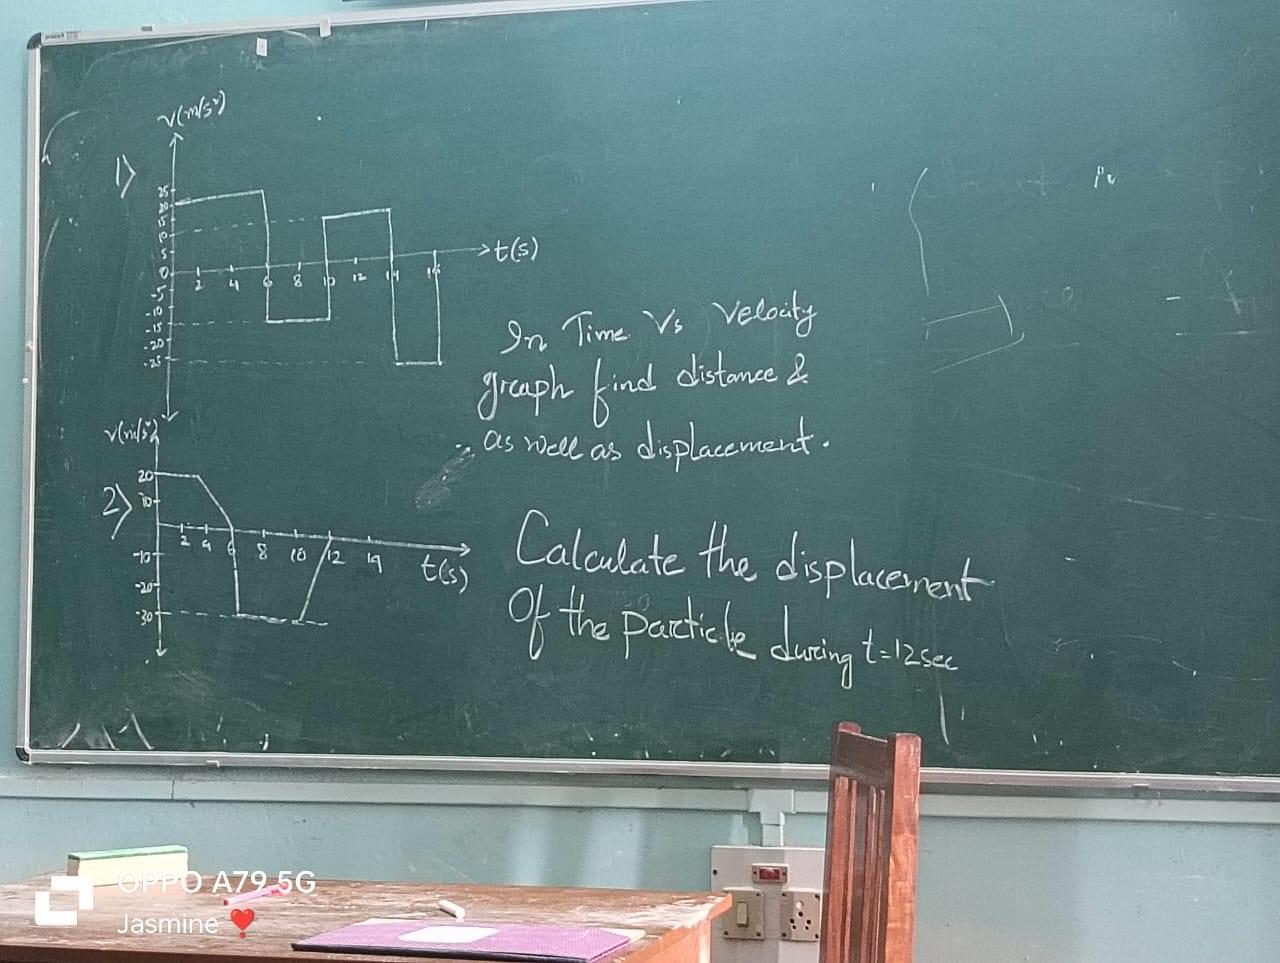 v(m/s²)
1)
25
20
15
10
5
0
-5
-10
-15
-20
-25
2 4 6 8 10 12 14 16
t(s)
In Time Vs Velocity
graph find distance &
as well as displacement.
v(m/s²)
2)
20
10
-10
-20
-30
2 4 6 8 10 12 14
t(s)
Calculate the displacement
Of the particle during t=12sec
OPPO A79 5G
Jasmine ❤️